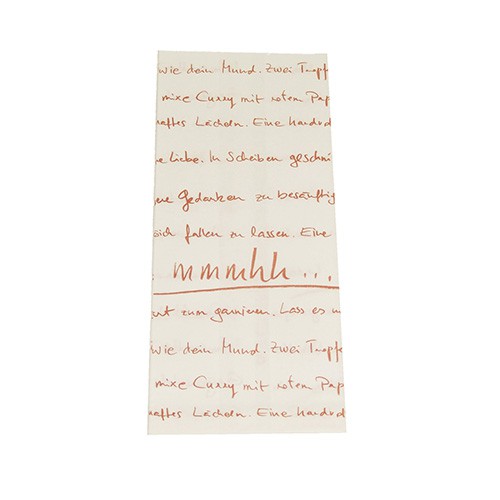 wie dein Mund. Zwei Tropfe
mixe Curry mit rotem Pap
haftes Lächeln. Eine handvol
e Liebe. In Scheiben geschni
ne Gedanken zu besänftig
sich fallen zu lassen. Eine
mmmhh...
ut zum garnieren. Lass es
wie dein Mund. Zwei Tropfe
mixe Curry mit rotem Pap
haftes Lächeln. Eine handvol